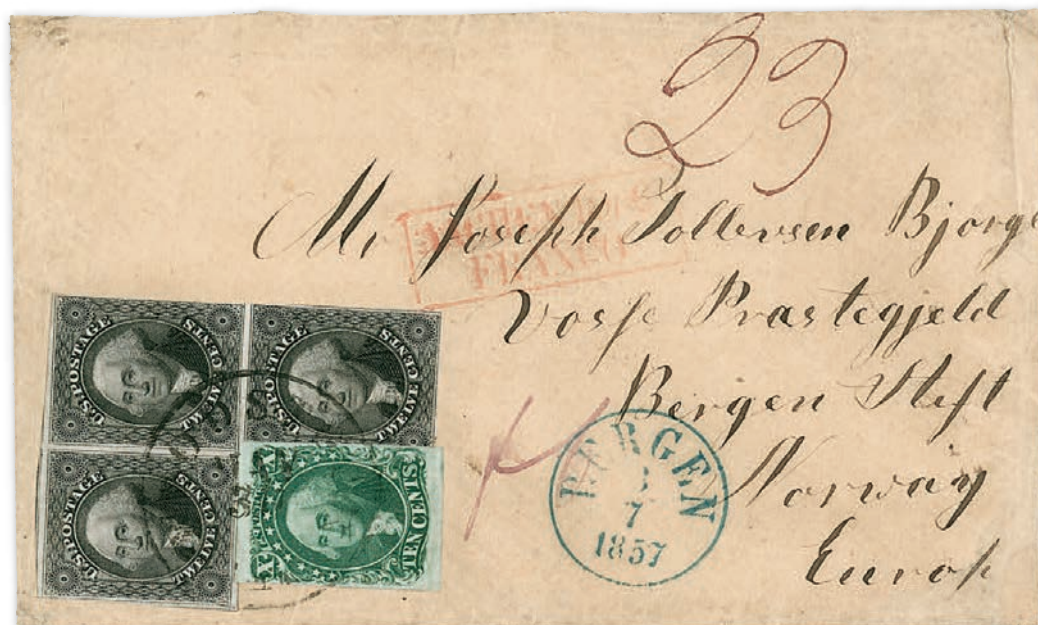 23
Mr Joseph Tollevsen Bjorge
Vosse Præstegjeld
Bergen Stift
Norway
Europ
FRANCO
BERGEN
7
1857
U.S. POSTAGE
TWELVE CENTS
U.S. POSTAGE
TWELVE CENTS
U.S. POSTAGE
TWELVE CENTS
X U.S. POSTAGE X
TEN CENTS